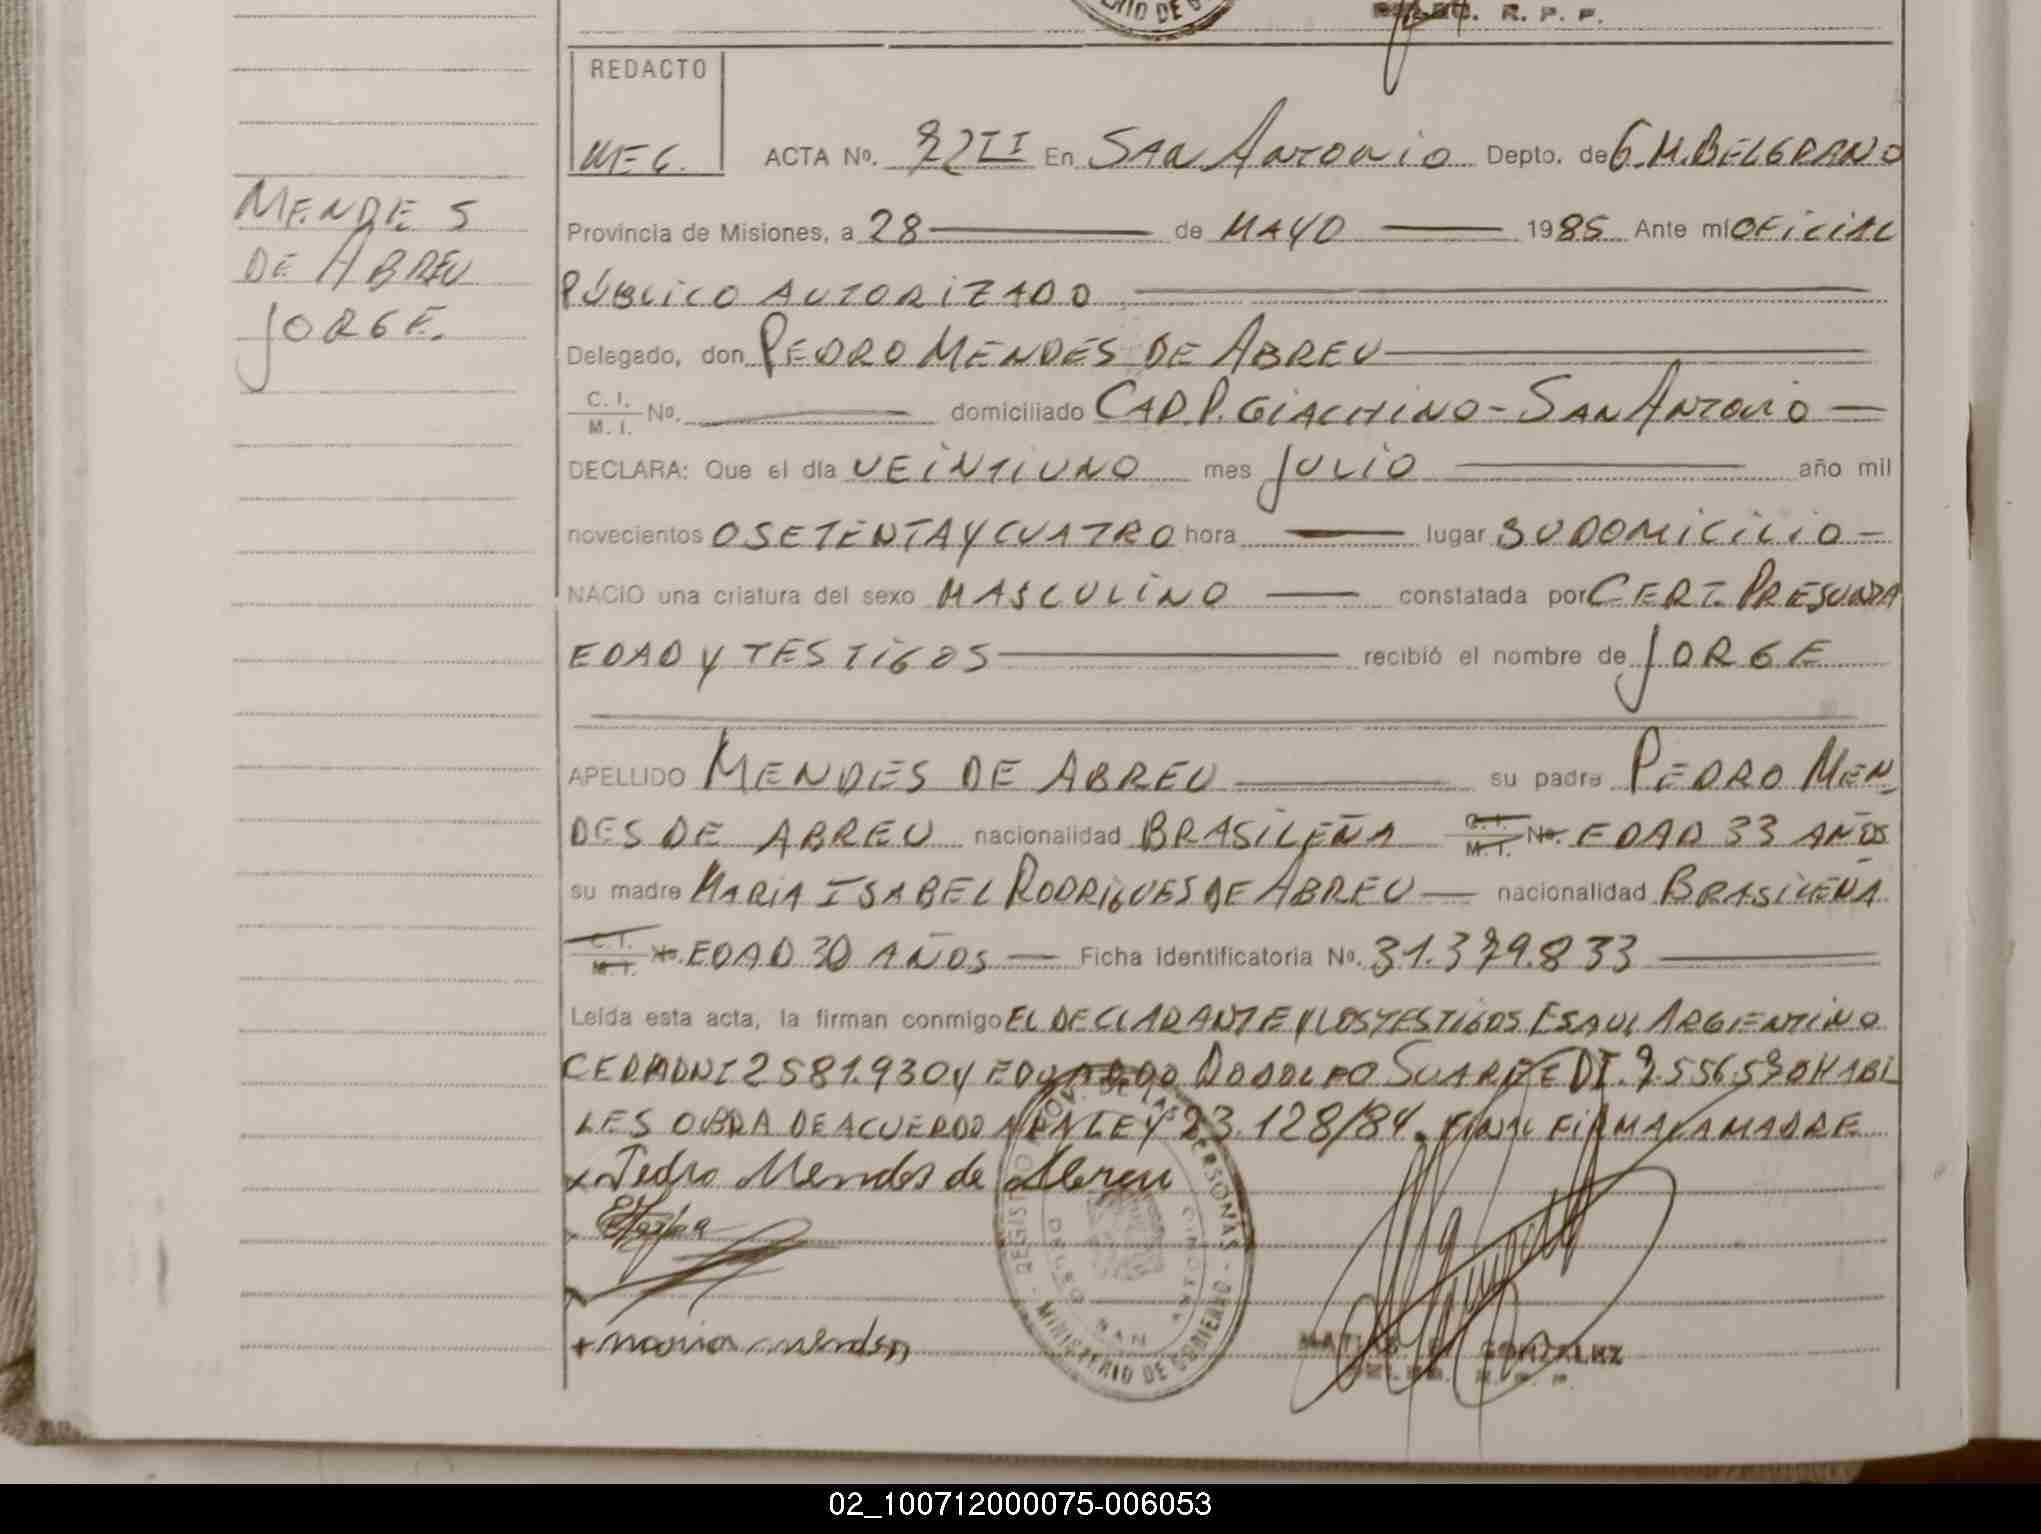 R. P. P.
REDACTO
ACTA Nº. En SAN ANTONIO Depto. de G.M.BELGRANO
MENDES
DE ABREU
JORGE.
Provincia de Misiones, a 28 de MAYO 1985 Ante mi OFICIAL
PÚBLICO AUTORIZADO
Delegado, don PEDRO MENDES DE ABREU
C. I.
M. I. No. domiciliado CAD.P.GIACHINO - SAN ANTONIO
DECLARA: Que el día VEINTIUNO mes JULIO año mil
novecientos OSETENTA Y CUATRO hora lugar SU DOMICILIO
NACIO una criatura del sexo MASCULINO constatada por CERT. PRESUNTA
EDAD Y TESTIGOS recibió el nombre de JORGE
APELLIDO MENDES DE ABREU su padre PEDRO MEN-
DES DE ABREU nacionalidad BRASILEÑA C. I. M. I. No. EDAD 33 AÑOS
su madre MARIA ISABEL RODRIGUES DE ABREU nacionalidad BRASILEÑA
C. I. M. I. No. EDAD 30 AÑOS Ficha Identificatoria Nº. 31.379.833
Leída esta acta, la firman conmigo EL DECLARANTE Y LOS TESTIGOS ARGENTINO
2581.930 Y EDUARDO RODOLFO SUAREZ HABI
LES OBRA DE ACUERDO A LA LEY 23.128/84. FIRMA LA MADRE
x Pedro Mendes de Abreu
+ maria mendes
REGISTRO PROV. DE LAS PERSONAS - MINISTERIO DE GOBIERNO
SAN ANTONIO
GONZALEZ
02_100712000075-006053